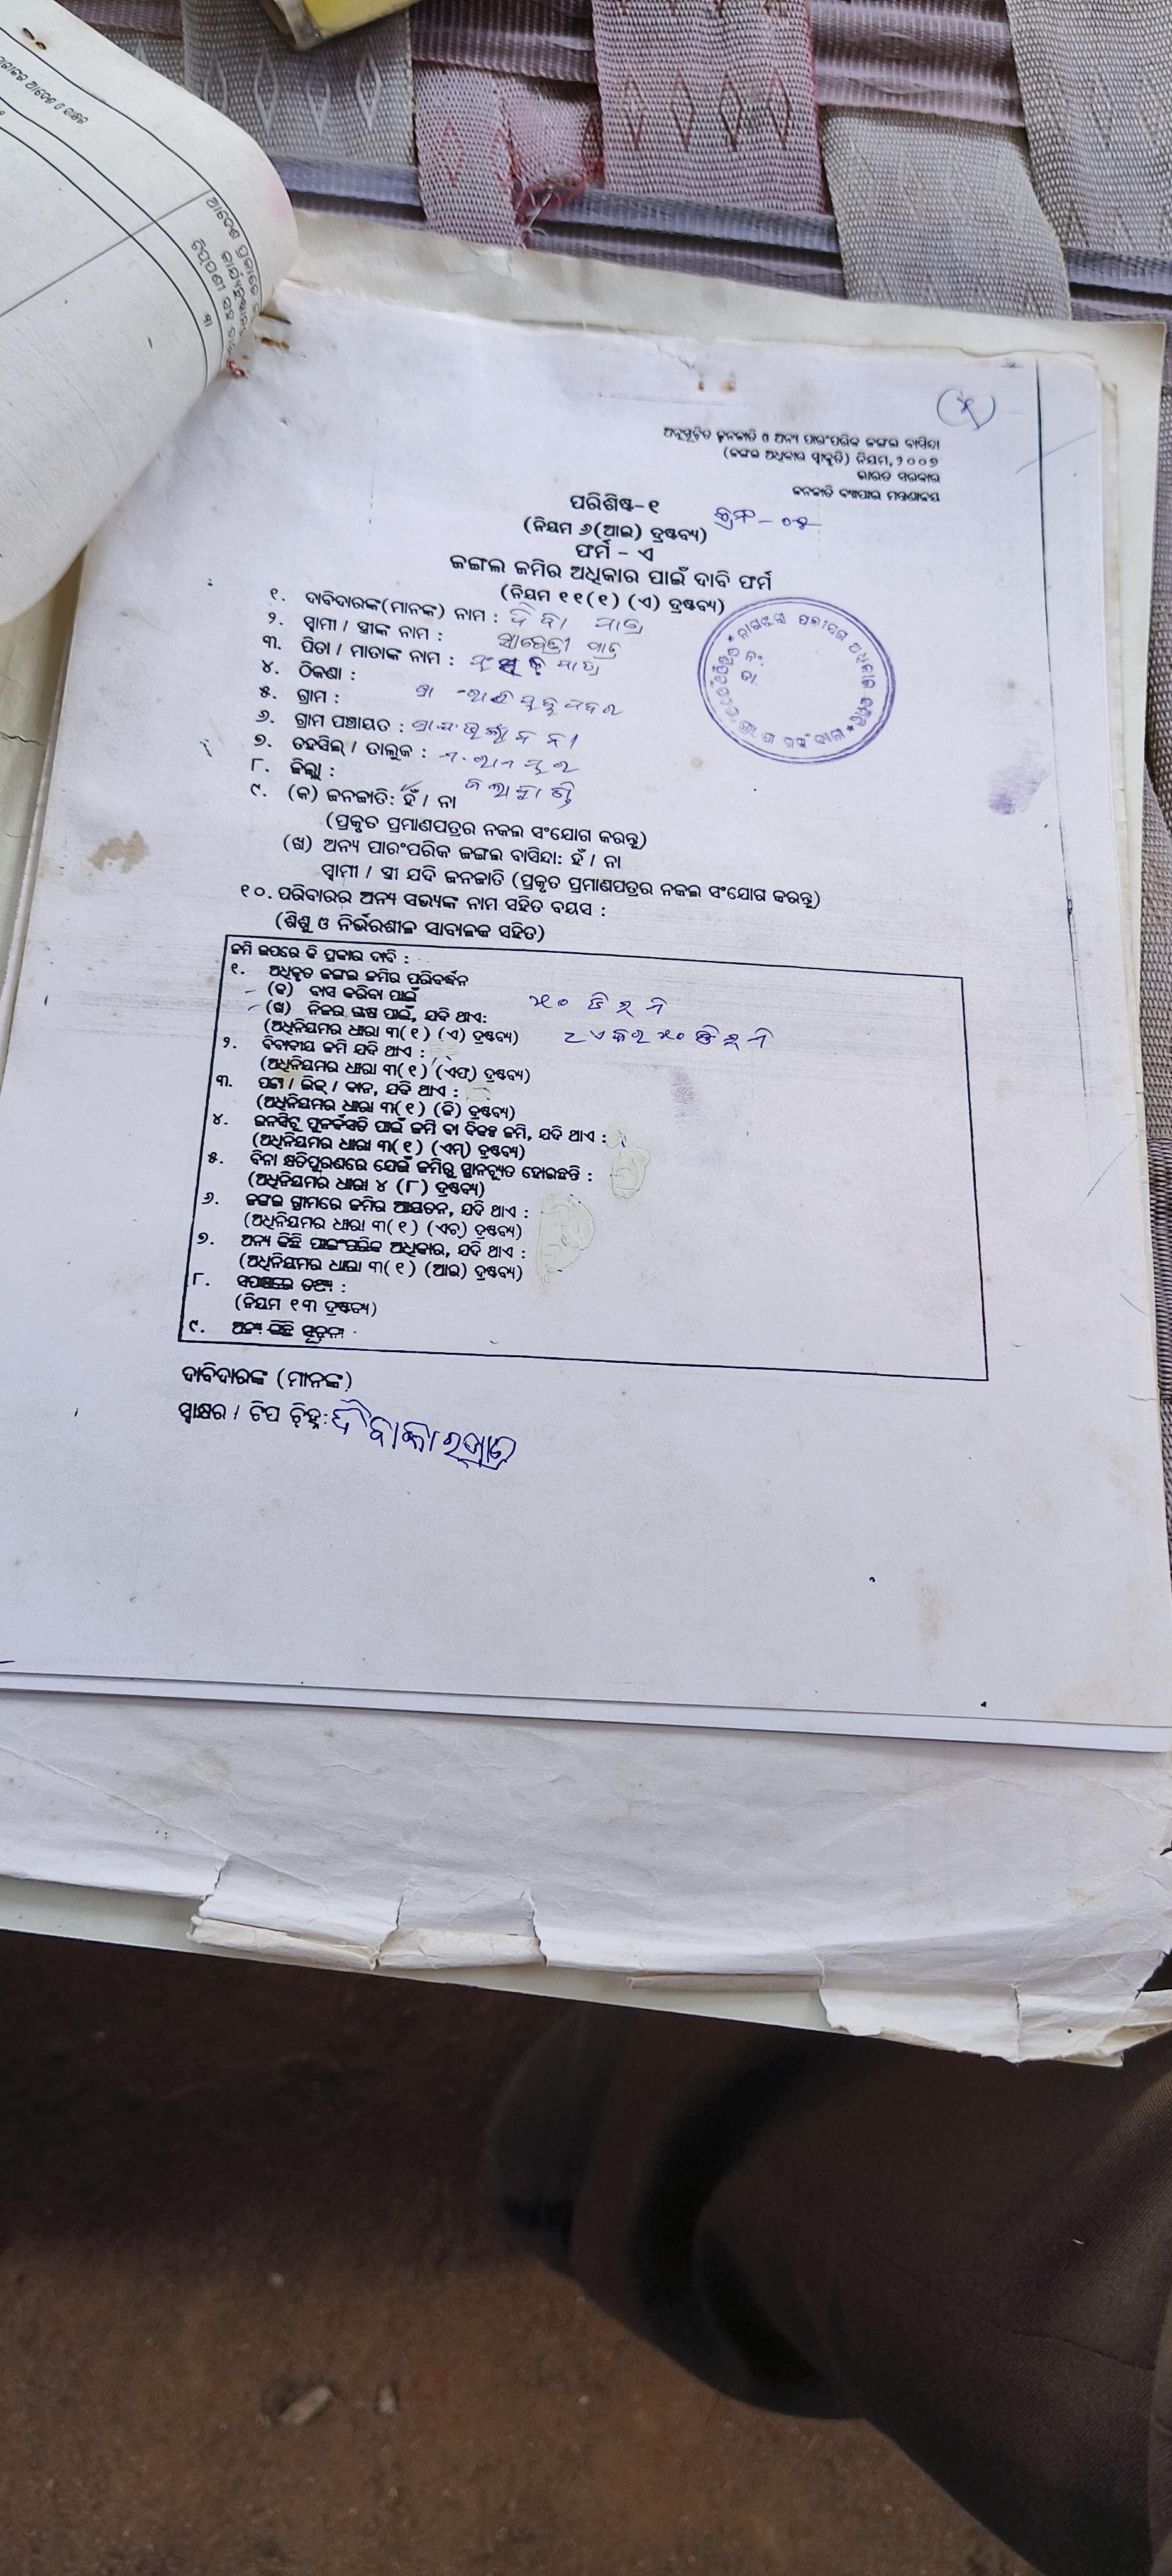 ଅନୁସୂଚିତ ଜନଜାତି ଓ ଅନ୍ୟ ପାରଂପରିକ ଜଙ୍ଗଲ ବାସିନ୍ଦା
(ଜଙ୍ଗଲ ଅଧିକାର ସ୍ବୀକୃତି) ନିୟମ, ୨୦୦୭
ଭାରତ ସରକାର
ଜନଜାତି ବ୍ୟାପାର ମନ୍ତ୍ରଣାଳୟ
ପରିଶିଷ୍ଟ-୧
(ନିୟମ ୬(ଆଇ) ଦ୍ରଷ୍ଟବ୍ୟ)
ଫର୍ମ - ଏ
ଜଙ୍ଗଲ ଜମିର ଅଧିକାର ପାଇଁ ଦାବି ଫର୍ମ
(ନିୟମ ୧୧(୧) (ଏ) ଦ୍ରଷ୍ଟବ୍ୟ)
୧. ଦାବିଦାରଙ୍କ(ମାନଙ୍କ) ନାମ :
୨. ସ୍ୱାମୀ / ସ୍ତ୍ରୀଙ୍କ ନାମ : ସାବେତ୍ରୀ ପାତ୍ର
୩. ପିତା / ମାତାଙ୍କ ନାମ :
୪. ଠିକଣା :
୫. ଗ୍ରାମ :
୬. ଗ୍ରାମ ପଞ୍ଚାୟତ :
୭. ତହସିଲ୍ / ତାଲୁକ :
୮. ଜିଲ୍ଲା : କଳାହାଣ୍ଡି
୯. (କ) ଜନଜାତି: ହଁ / ନା
(ପ୍ରକୃତ ପ୍ରମାଣପତ୍ରର ନକଲ ସଂଯୋଗ କରନ୍ତୁ)
(ଖ) ଅନ୍ୟ ପାରଂପରିକ ଜଙ୍ଗଲ ବାସିନ୍ଦା: ହଁ / ନା
ସ୍ୱାମୀ / ସ୍ତ୍ରୀ ଯଦି ଜନଜାତି (ପ୍ରକୃତ ପ୍ରମାଣପତ୍ରର ନକଲ ସଂଯୋଗ କରନ୍ତୁ)
୧୦. ପରିବାରର ଅନ୍ୟ ସଭ୍ୟଙ୍କ ନାମ ସହିତ ବୟସ :
(ଶିଶୁ ଓ ନିର୍ଭରଶୀଳ ସାବାଳକ ସହିତ)
ଜମି ଉପରେ କି ପ୍ରକାର ଦାବି :
୧. ଅଧିକୃତ ଜଙ୍ଗଲ ଜମିର ପରିବର୍ଦ୍ଧନ
(କ) ବାସ କରିବା ପାଇଁ ୫୦ ଡିସିମି
(ଖ) ନିଜର ଚାଷ ପାଇଁ, ଯଦି ଥାଏ: ୯ ଏକର ୫୦ ଡିସିମି
(ଅଧିନିୟମର ଧାରା ୩(୧) (ଏ) ଦ୍ରଷ୍ଟବ୍ୟ)
୨. ବିବାଦୀୟ ଜମି ଯଦି ଥାଏ :
(ଅଧିନିୟମର ଧାରା ୩(୧) (ଏଫ୍) ଦ୍ରଷ୍ଟବ୍ୟ)
୩. ପଟ୍ଟା / ଲିଜ୍ / ଦାନ, ଯଦି ଥାଏ :
(ଅଧିନିୟମର ଧାରା ୩(୧) (ଜି) ଦ୍ରଷ୍ଟବ୍ୟ)
୪. ଇନସିଟୁ ପୁନର୍ବସତି ପାଇଁ ଜମି ବା ବିକଳ୍ପ ଜମି, ଯଦି ଥାଏ :
(ଅଧିନିୟମର ଧାରା ୩(୧) (ଏମ୍) ଦ୍ରଷ୍ଟବ୍ୟ)
୫. ବିନା କ୍ଷତିପୂରଣରେ ଯେଉଁ ଜମିରୁ ସ୍ଥାନଚ୍ୟୁତ ହୋଇଛନ୍ତି :
(ଅଧିନିୟମର ଧାରା ୪ (୮) ଦ୍ରଷ୍ଟବ୍ୟ)
୬. ଜଙ୍ଗଲ ଗ୍ରାମରେ ଜମିର ଆୟତନ, ଯଦି ଥାଏ :
(ଅଧିନିୟମର ଧାରା ୩(୧) (ଏଚ୍) ଦ୍ରଷ୍ଟବ୍ୟ)
୭. ଅନ୍ୟ କିଛି ପାରଂପରିକ ଅଧିକାର, ଯଦି ଥାଏ :
(ଅଧିନିୟମର ଧାରା ୩(୧) (ଆଇ) ଦ୍ରଷ୍ଟବ୍ୟ)
୮. ସପକ୍ଷରେ ତଥ୍ୟ :
(ନିୟମ ୧୩ ଦ୍ରଷ୍ଟବ୍ୟ)
୯. ଅନ୍ୟ କିଛି ସୂଚନା
ଦାବିଦାରଙ୍କ (ମାନଙ୍କ)
ସ୍ୱାକ୍ଷର / ଟିପ ଚିହ୍ନ: ଦିବାକାର ପାତ୍ର